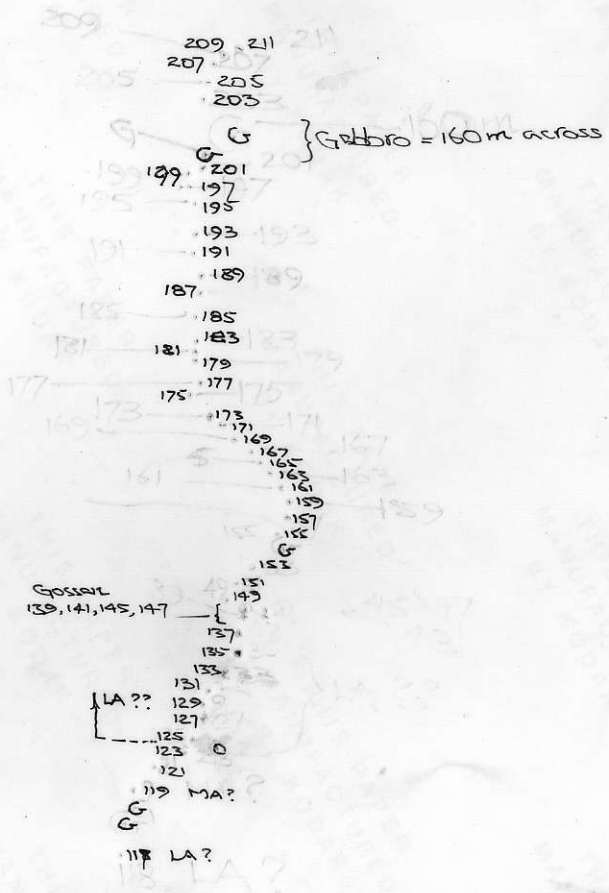 209 211
207
205
203
G } Gabbro = 160m across
G
199 201
197
195
193
191
189
187
185
183
181
179
177
175
173
171
169
167
165
163
161
159
157
155
G
153
151
149
Gossan
139, 141, 145, 147 {
137
135
133
131
LA ?? 129
127
125
123 O
121
119 MA?
G
G
117 LA?